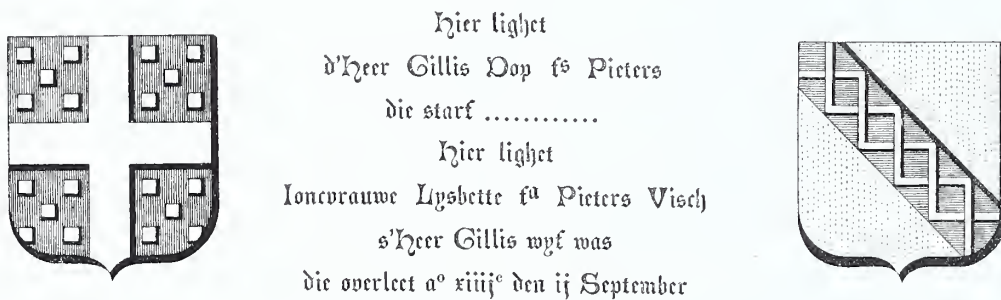 Hier lighet
d'Heer Gillis Dop fs Pieters
die starf ............
Hier lighet
Joncvrauwe Lysbette fa Pieters Visch
s'Heer Gillis wyf was
die overleet ao xiiijc den ij September